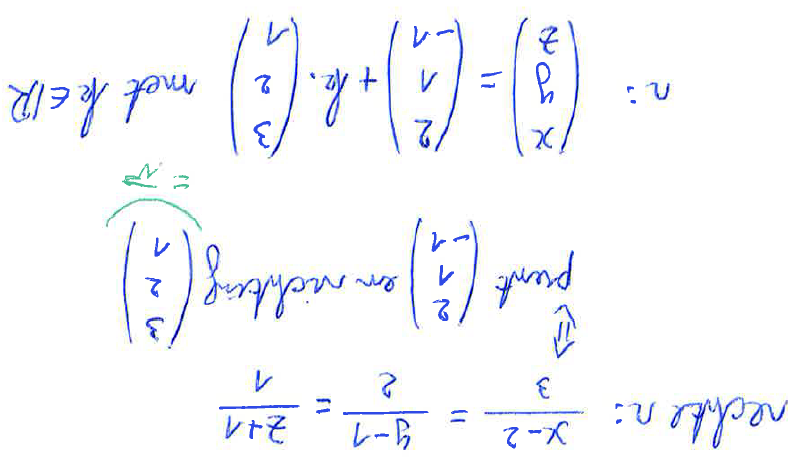 rechte r: \frac{x-2}{3} = \frac{y-1}{2} = \frac{z+1}{1}
⇕
punt \begin{pmatrix} 2 \\ 1 \\ -1 \end{pmatrix} en richting \begin{pmatrix} 3 \\ 2 \\ 1 \end{pmatrix}
= \vec{r}
r: \begin{pmatrix} x \\ y \\ z \end{pmatrix} = \begin{pmatrix} 2 \\ 1 \\ -1 \end{pmatrix} + k \cdot \begin{pmatrix} 3 \\ 2 \\ 1 \end{pmatrix} met k ∈ ℝ